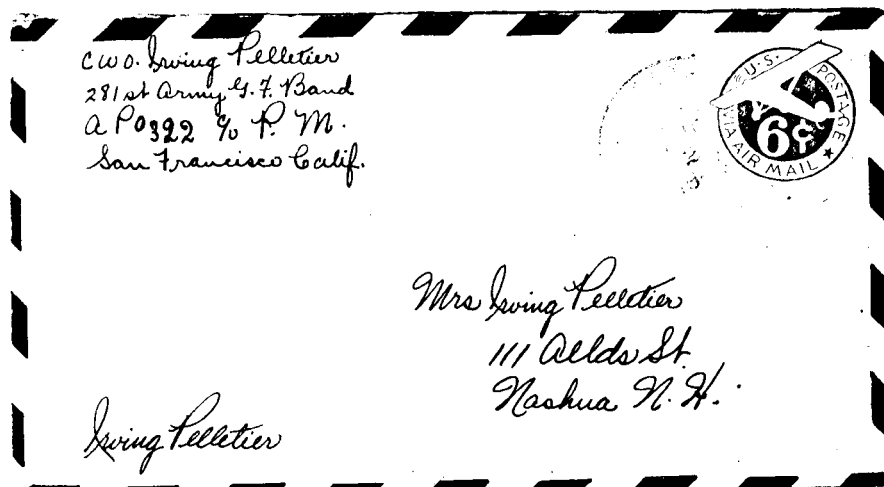 CWO. Irving Pelletier
281st Army G.F. Band
APO 322 c/o P. M.
San Francisco Calif.
U.S. POSTAGE
6¢
VIA AIR MAIL
Mrs Irving Pelletier
111 Allds St.
Nashua N.H.
Irving Pelletier